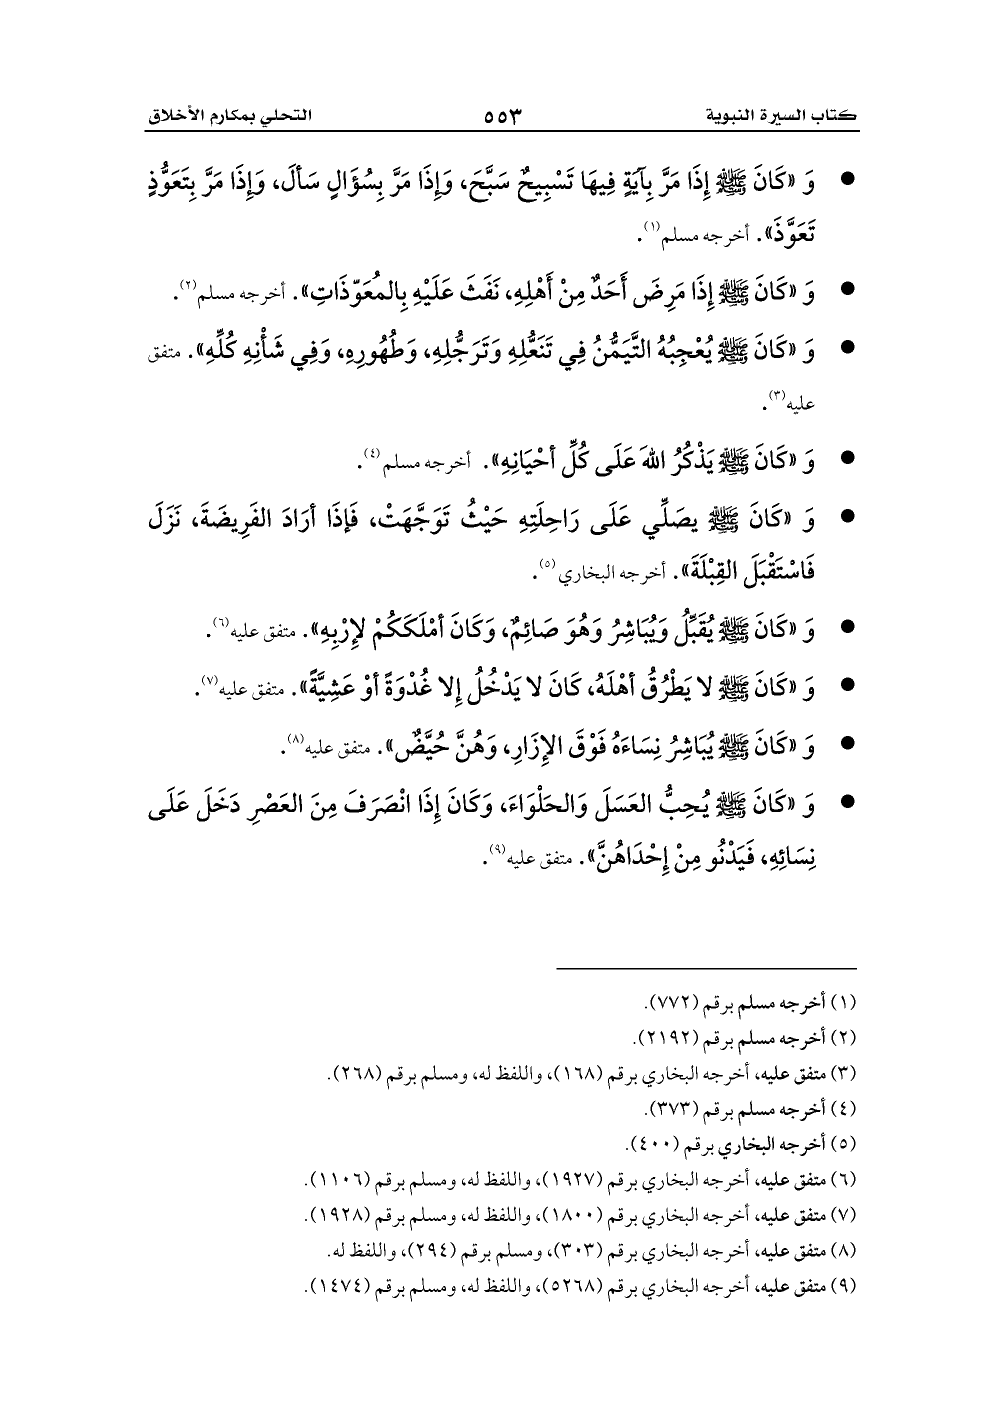 كتاب السيرة النبوية ٥٥٣ التحلي بمكارم الأخلاق
● وَ «كَانَ ﷺ إِذَا مَرَّ بِآيَةٍ فِيهَا تَسْبِيحٌ سَبَّحَ، وَإِذَا مَرَّ بِسُؤَالٍ سَأَلَ، وَإِذَا مَرَّ بِتَعَوُّذٍ
تَعَوَّذَ». أخرجه مسلم(١).
● وَ «كَانَ ﷺ إِذَا مَرِضَ أَحَدٌ مِنْ أَهْلِهِ، نَفَثَ عَلَيْهِ بِالمُعَوِّذَاتِ». أخرجه مسلم(٢).
● وَ «كَانَ ﷺ يُعْجِبُهُ التَّيَمُّنُ فِي تَنَعُّلِهِ وَتَرَجُّلِهِ، وَطُهُورِهِ، وَفِي شَأْنِهِ كُلِّهِ». متفق
عليه(٣).
● وَ «كَانَ ﷺ يَذْكُرُ اللهَ عَلَى كُلِّ أَحْيَانِهِ». أخرجه مسلم(٤).
● وَ «كَانَ ﷺ يصَلِّي عَلَى رَاحِلَتِهِ حَيْثُ تَوَجَّهَتْ، فَإِذَا أَرَادَ الفَرِيضَةَ، نَزَلَ
فَاسْتَقْبَلَ القِبْلَةَ». أخرجه البخاري(٥).
● وَ «كَانَ ﷺ يُقَبِّلُ وَيُبَاشِرُ وَهُوَ صَائِمٌ، وَكَانَ أَمْلَكَكُمْ لإِرْبِهِ». متفق عليه(٦).
● وَ «كَانَ ﷺ لا يَطْرُقُ أَهْلَهُ، كَانَ لا يَدْخُلُ إِلا غُدْوَةً أَوْ عَشِيَّةً». متفق عليه(٧).
● وَ «كَانَ ﷺ يُبَاشِرُ نِسَاءَهُ فَوْقَ الإِزَارِ، وَهُنَّ حُيَّضٌ». متفق عليه(٨).
● وَ «كَانَ ﷺ يُحِبُّ العَسَلَ وَالحَلْوَاءَ، وَكَانَ إِذَا انْصَرَفَ مِنَ العَصْرِ دَخَلَ عَلَى
نِسَائِهِ، فَيَدْنُو مِنْ إِحْدَاهُنَّ». متفق عليه(٩).
(١) أخرجه مسلم برقم (٧٧٢).
(٢) أخرجه مسلم برقم (٢١٩٢).
(٣) متفق عليه، أخرجه البخاري برقم (١٦٨)، واللفظ له، ومسلم برقم (٢٦٨).
(٤) أخرجه مسلم برقم (٣٧٣).
(٥) أخرجه البخاري برقم (٤٠٠).
(٦) متفق عليه، أخرجه البخاري برقم (١٩٢٧)، واللفظ له، ومسلم برقم (١١٠٦).
(٧) متفق عليه، أخرجه البخاري برقم (١٨٠٠)، واللفظ له، ومسلم برقم (١٩٢٨).
(٨) متفق عليه، أخرجه البخاري برقم (٣٠٣)، ومسلم برقم (٢٩٤)، واللفظ له.
(٩) متفق عليه، أخرجه البخاري برقم (٥٢٦٨)، واللفظ له، ومسلم برقم (١٤٧٤).